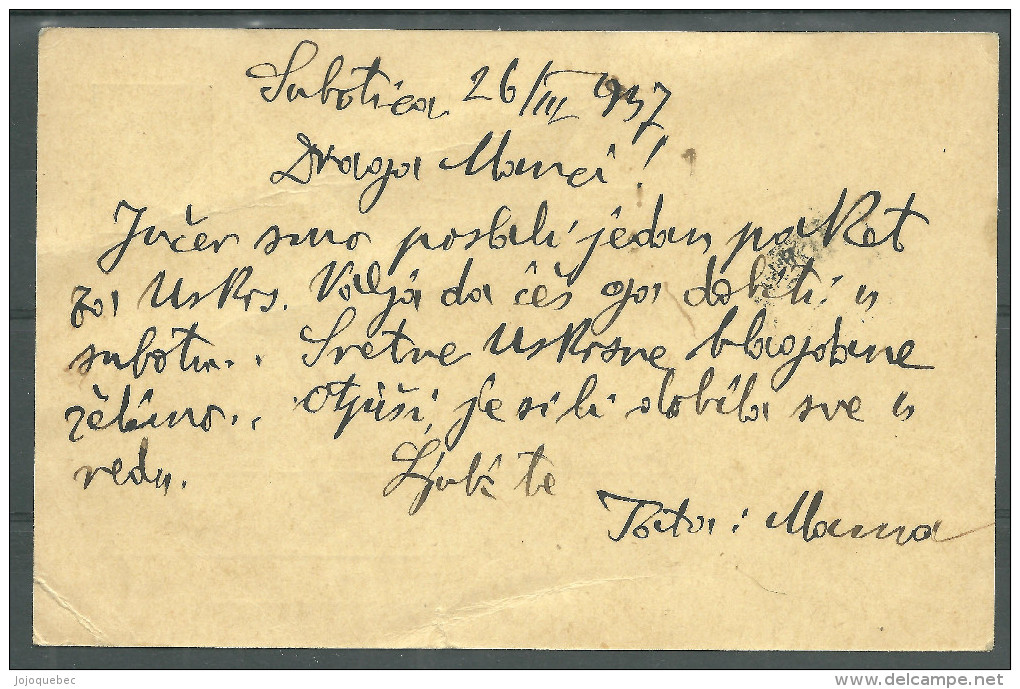 Subotica 26/III 1937
Draga Manci!
Jučer smo poslali jedan paket
za Uskrs. Valjda ćeš ga dobiti u
subotu. Sretne Uskrsne blagdane
želimo. Otpiši, jesi li dobila sve u
redu. Ljubi te
Tata i Mama
jojoquebec
delcampe.net